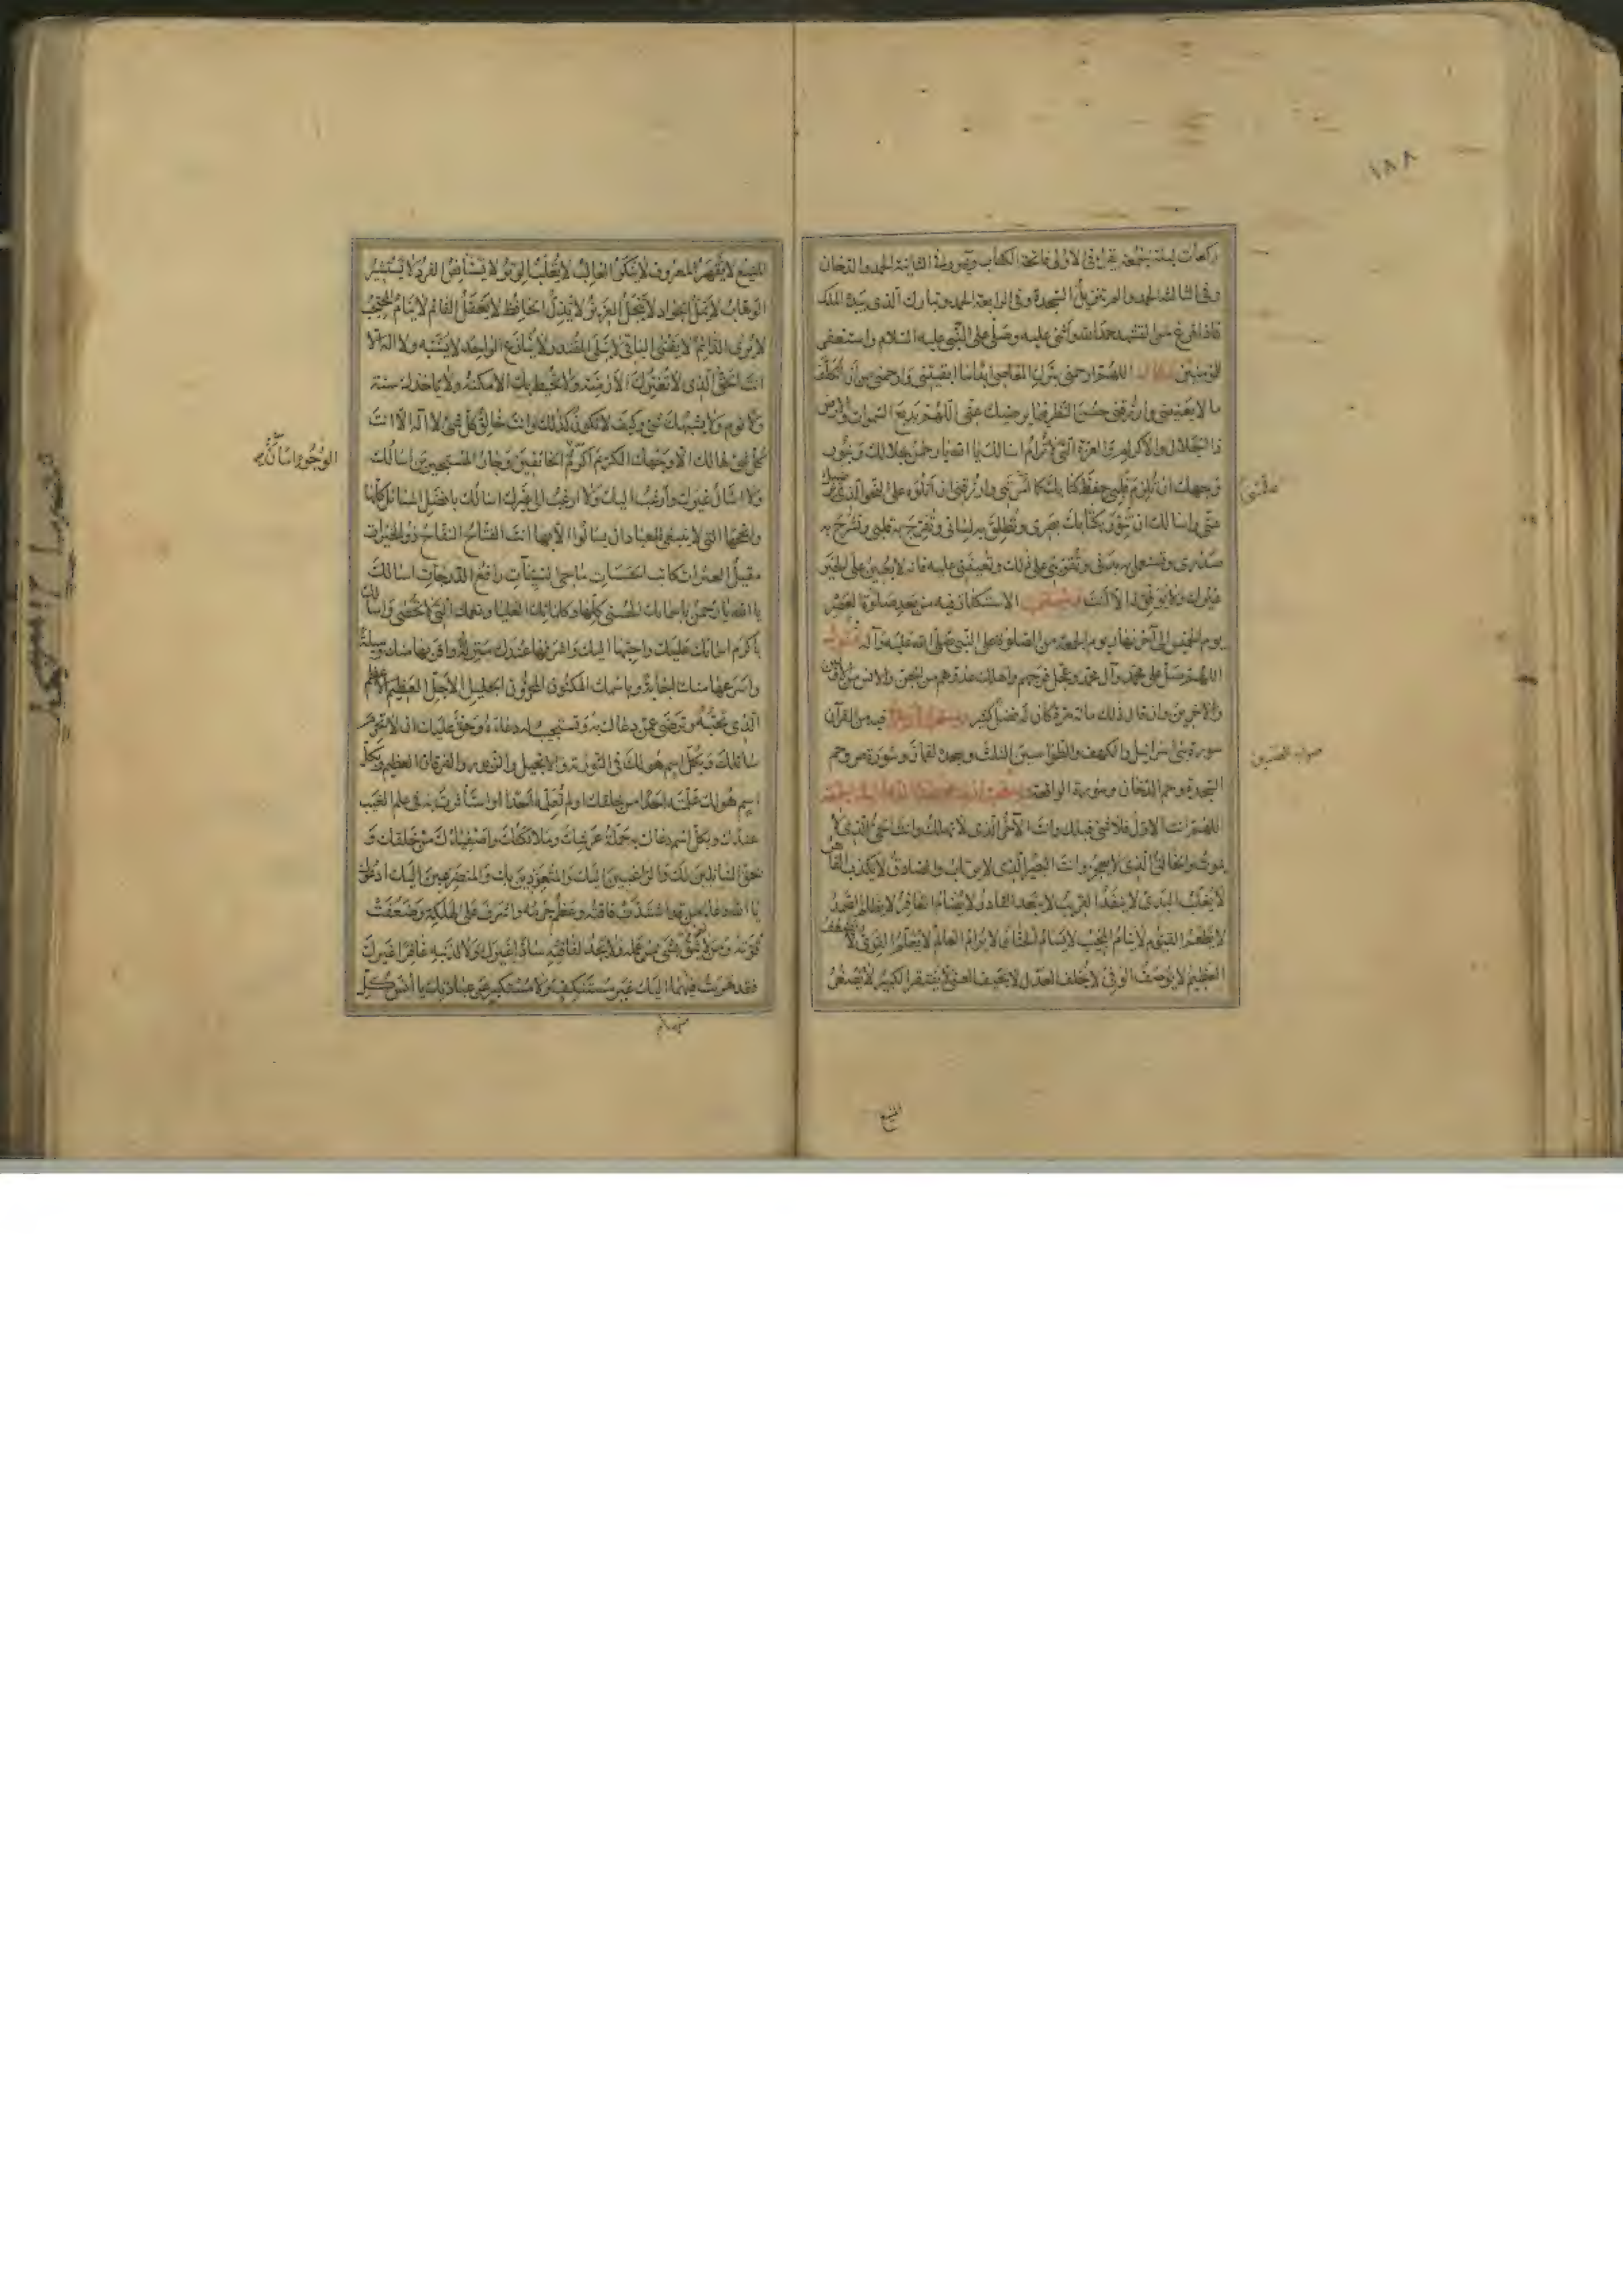 ١٨٨
ركعات ليلة الجمعة يقرأ في الاولى فاتحة الكتاب ويس وفي الثانية الحمد والدخان
وفي الثالثة الحمد والم تنزيل السجدة وفي الرابعة الحمد وتبارك الذي بيده الملك
فاذا فرغ من التشهد حمد الله واثنى عليه وصلى على النبي عليه السلام واستغفر
للمؤمنين اللهم ارحمني بترك المعاصي ابدا ما ابقيتني وارحمني من ان اتكلف
ما لا يعنيني وارزقني حسن النظر فيما يرضيك عني اللهم بديع السموات والارض
ذا الجلال والاكرام والعزة التي لا ترام اسالك يا الله يا رحمن بجلالك وبنور
وجهك ان تلزم قلبي حفظ كتابك كما علمتني وارزقني ان اتلوه على النحو الذي يرضيك
عني واسالك ان تنور بكتابك بصري وتطلق به لساني وتفرج به قلبي وتشرح به
صدري وتستعمل به بدني وتقويني على ذلك وتعينني عليه فانه لا يعين على الخير
غيرك ولا يوفق له الا انت ويستحب الاستكثار فيه من بعد صلوة العصر
يوم الخميس الى آخر نهار يوم الجمعة من الصلوة على النبي صلى الله عليه وآله فيقول
اللهم صل على محمد وآل محمد وعجل فرجهم واهلك عدوهم من الجن والانس من الاولين
والآخرين وان قال ذلك مائة مرة كان له فضل كثير ويستحب ان يقرأ فيه من القرآن
سورة بني اسرائيل والكهف والطواسين الثلث وسجدة لقمان وسورة ص وحم
السجدة وحم الدخان وسورة الواقعة
اللهم انت الاول فلا شيء قبلك وانت الآخر الذي لا تهلك وانت الحي الذي لا
يموت والخالق الذي لا يعجز وانت البصير الذي لا يرتاب والصادق لا يكذب القاهر
لا يغلب البديء لا ينفد القريب لا يبعد القادر لا يضام الغافر لا يظلم الصمد
لا يطعم القيوم لا ينام المجيب لا يسأم الحنان لا يرام العالم لا يعلم القوي لا يضعف
العظيم لا يوصف الوفي لا يخلف العدل لا يحيف الغني لا يفتقر الكبير لا يصغر
المنيع
المنيع لا يقهر المعروف لا ينكر الغالب لا يغلب الوتر لا يستأنس الفرد لا يستشير
الوهاب لا يمل الجواد لا يبخل العزيز لا يذل الحافظ لا يغفل القائم لا ينام المحتجب
لا يرى الدائم لا يفنى الباقي لا يبلى المقتدر لا ينازع الواحد لا يشبه ولا اله الا
انت الحق الذي لا تغيرك الازمنة ولا تحيط بك الامكنة ولا ياخذك سنة
ولا نوم ولا يشبهك شيء وكيف لا تكون كذلك وانت خالق كل شيء لا اله الا انت
كل شيء هالك الا وجهك الكريم اكرم الوجوه امان الخائفين وجار المستجيرين اسالك
ولا اسال غيرك وارغب اليك ولا ارغب الى غيرك اسالك بافضل المسائل كلها
وانجحها التي لا ينبغي للعباد ان يسالوا الا بها انت الفتاح النفاح ذو الخيرات
مقيل العثرات كاتب الحسنات ماحي السيئات رافع الدرجات اسالك
يا الله يا رحمن باسمائك الحسنى كلها وكلماتك العليا ونعمك التي لا تحصى واسالك
باكرم اسمائك عليك واحبها اليك واشرفها عندك منزلة واقربها منك وسيلة
واسرعها منك اجابة وباسمك المكنون المخزون الجليل الاجل العظيم الاعظم
الذي تحبه وترضى عمن دعاك به وتستجيب له دعاءه وحق عليك ان لا تحرم
سائلك وبكل اسم هو لك في التورية والانجيل والزبور والفرقان العظيم وبكل
اسم هو لك علمته احدا من خلقك او لم تعلمه احدا او استأثرت به في علم الغيب
عندك وبكل اسم دعاك به حملة عرشك وملائكتك واصفياؤك من خلقك و
بحق السائلين لك والراغبين اليك والمتعوذين بك والمتضرعين اليك ادعوك
يا الله دعاء من قد اشتدت فاقته وعظم جرمه واشرف على الهلكة وضعفت
قوته ومن لا يثق بشيء من عمله ولا يجد لفاقته سادا غيرك ولا لذنبه غافرا غيرك
فقد هربت منها اليك غير مستنكف ولا مستكبر عن عبادتك يا انس كل